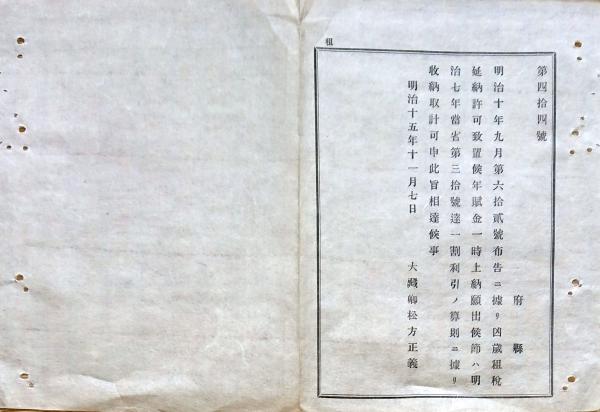 租
第四拾四號
府縣
明治十年九月第六拾貳號布告ニ據リ凶歳租稅
延納許可致置候年賦金一時上納願出候節ハ明
治七年當省第三拾號達一割利引ノ算則ニ據リ
收納取計可申此旨相達候事
明治十五年十一月七日
大藏卿松方正義